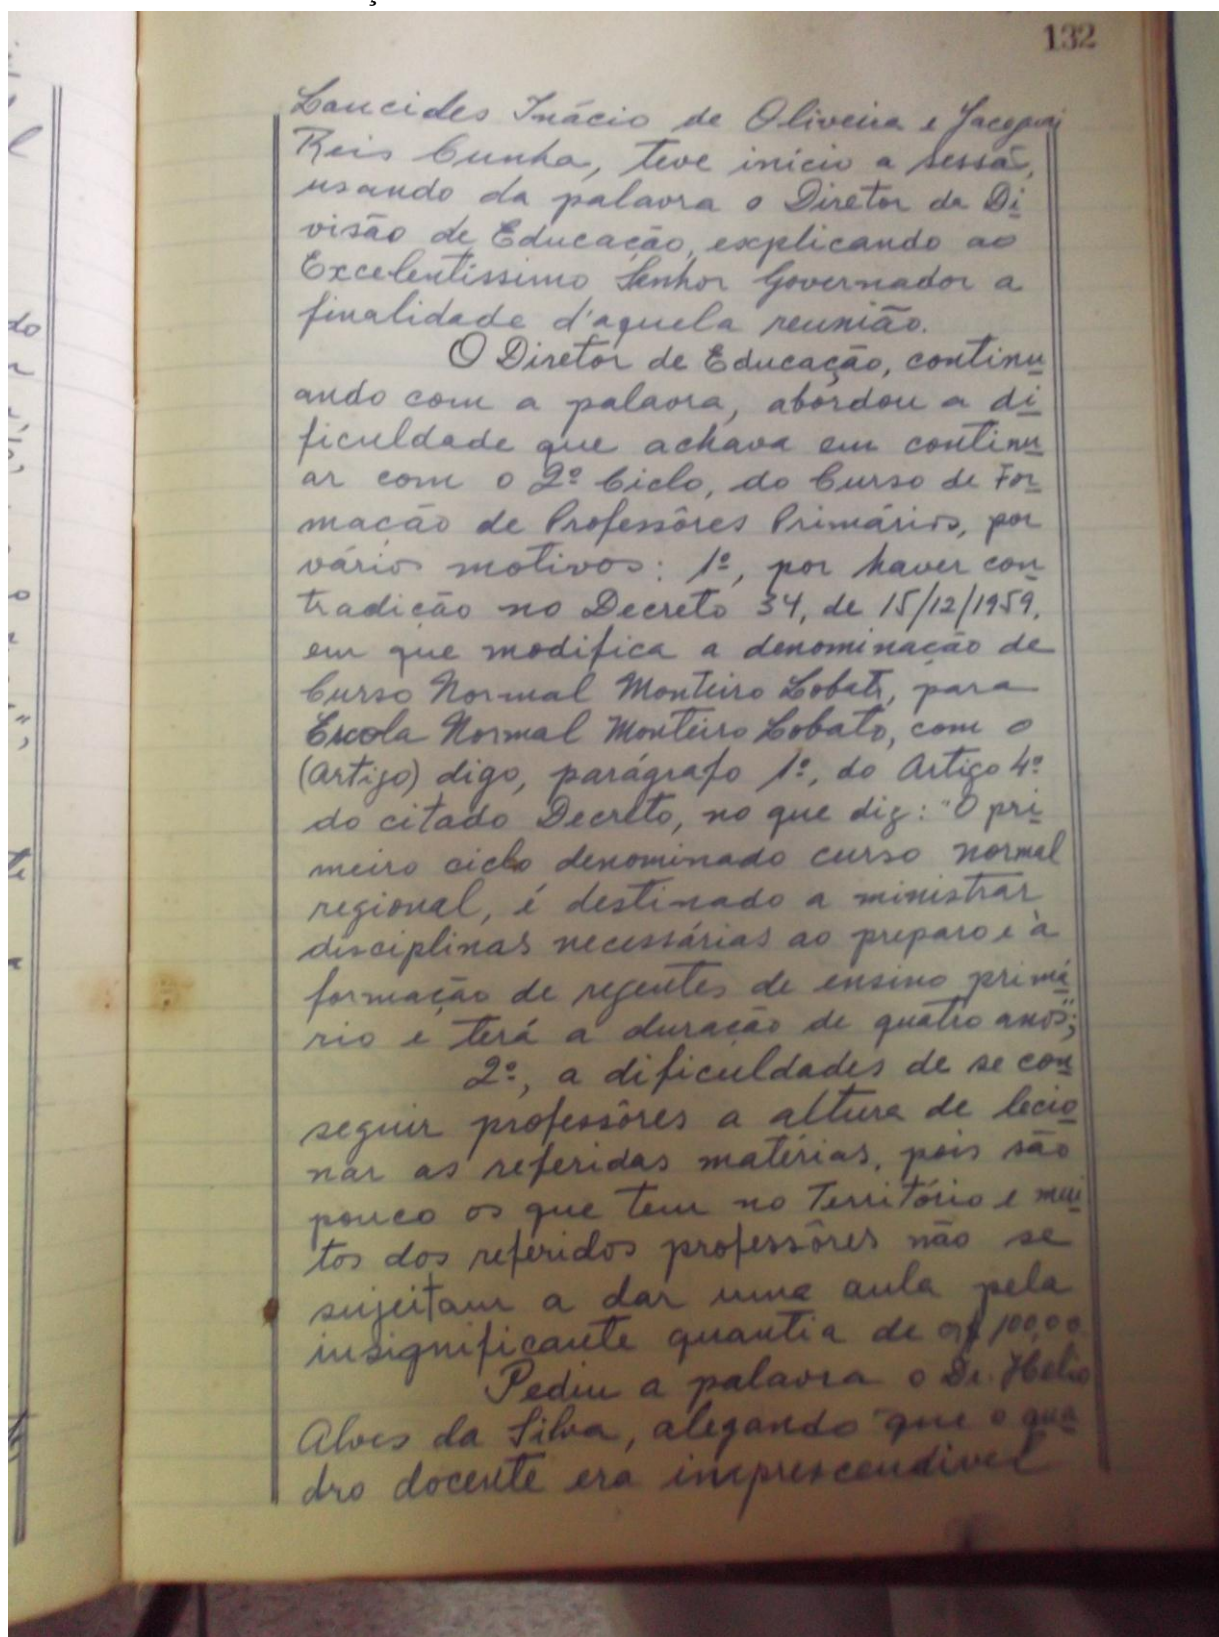 132
Laucides Inácio de Oliveira e Jaceguai
Reis Cunha, teve início a sessã,
usando da palavra o Diretor da Di
visão de Educação, explicando ao
Excelentíssimo Senhor Governador a
finalidade d'aquela reunião.
O Diretor de Educação, continu
ando com a palavra, abordou a di
ficuldade que achava em continu
ar com o 2º Ciclo, do Curso de For
mação de Professôres Primários, por
vários motivos: 1º, por haver con
tradição no Decreto 34, de 15/12/1959,
em que modifica a denominação de
Curso Normal Monteiro Lobato, para
Escola Normal Monteiro Lobato, com o
(Artigo) digo, parágrafo 1º, do Artigo 4º
do citado Decreto, no que diz: "O pri
meiro ciclo denominado curso normal
regional, é destinado a ministrar
disciplinas necessárias ao preparo e à
formação de regentes de ensino primá
rio e terá a duração de quatro anos";
2º, a dificuldades de se con
seguir professôres a altura de lecio
nar as referidas matérias, pois são
pouco os que tem no Território e mui
tos dos referidos professôres não se
sujeitam a dar uma aula pela
insignificante quantia de Cr$ 100,00.
Pediu a palavra o Dr. Helio
Alves da Silva, alegando que o qua
dro docente era imprescendivel